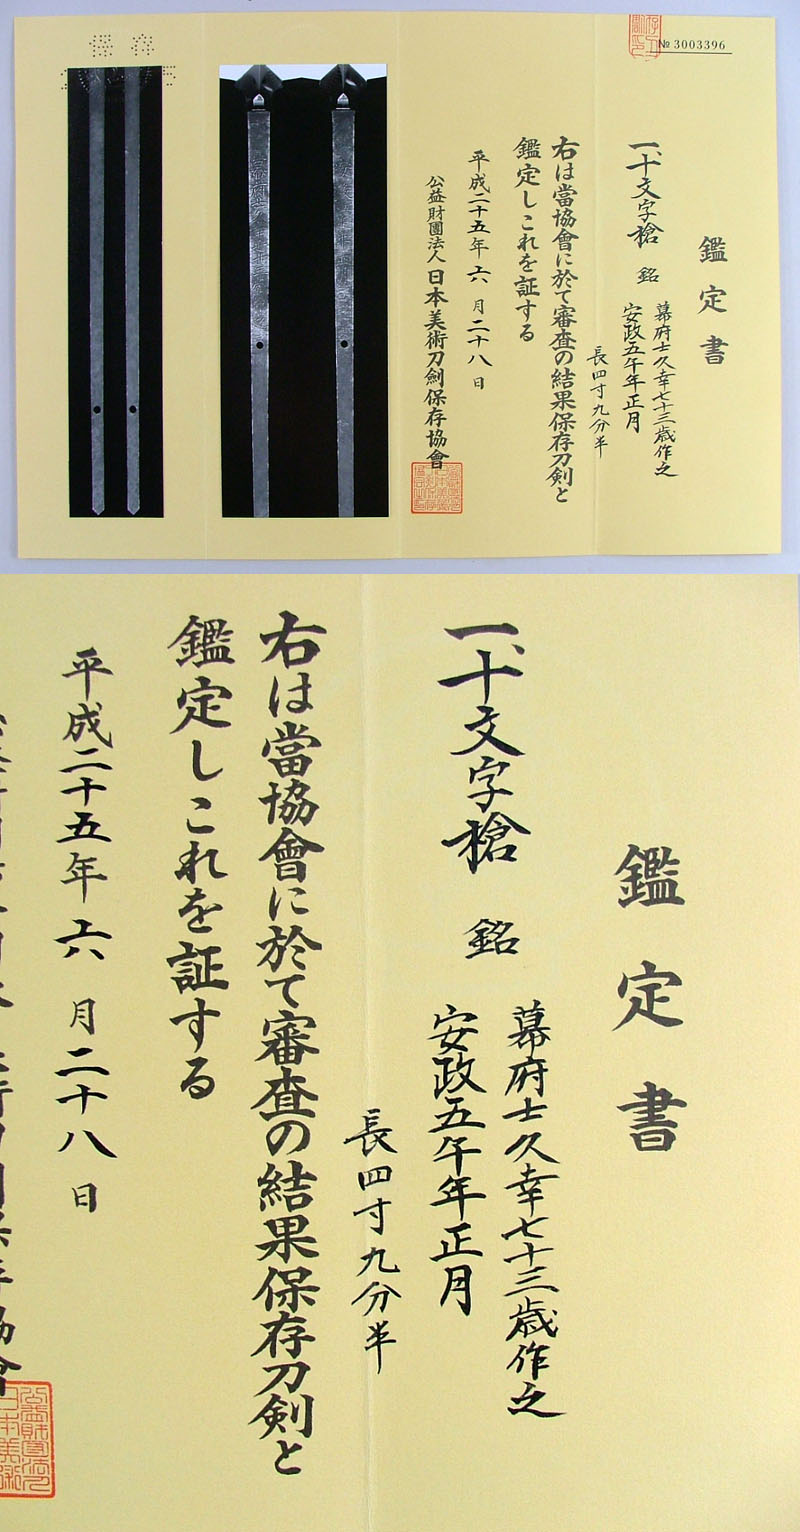 № 3003396
鑑定書
一、十文字槍 銘
幕府士久幸七十三歳作之
安政五午年正月
長四寸九分半
右は當協會に於て審査の結果保存刀剣と
鑑定しこれを証する
平成二十五年六月二十八日
公益財團法人日本美術刀劍保存協會
保存
鑑定書
一、十文字槍 銘
幕府士久幸七十三歳作之
安政五午年正月
長四寸九分半
右は當協會に於て審査の結果保存刀剣と
鑑定しこれを証する
平成二十五年六月二十八日